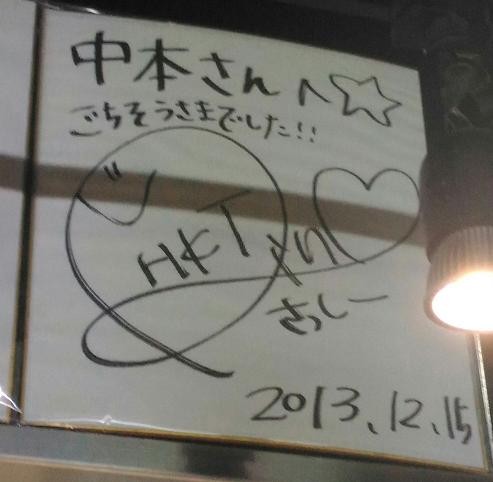 中本さんへ☆
ごちそうさまでした!!
HKT
さっしー
2013.12.15